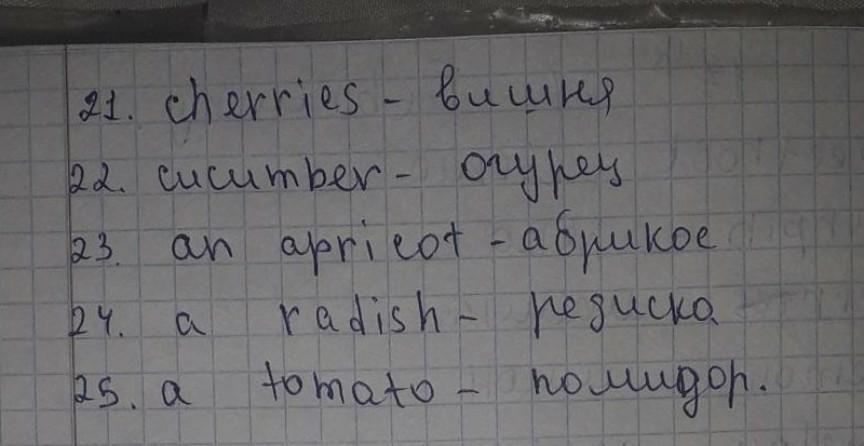 21. cherries - вишня
22. cucumber - огурец
23. an apricot - абрикос
24. a radish - редиска
25. a tomato - помидор.